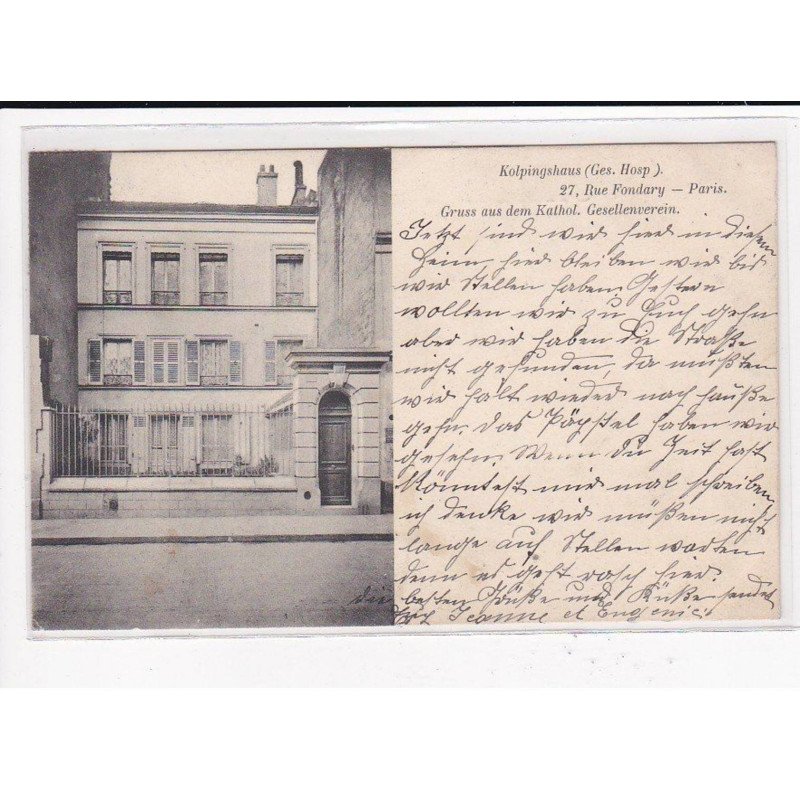 Kolpingshaus (Ges. Hosp ).
27, Rue Fondary — Paris.
Gruss aus dem Kathol. Gesellenverein.
Jetzt sind wir hier in diesem
Heim, hier bleiben wir bis
wir Stellen haben Gestern
wollten wir zu Euch gehn
aber wir haben die Straße
nicht gefunden, da mußten
wir halt wieder nach hauße
gehn. das Päpstel haben wir
gesehn. Wenn du Zeit hast
könntest mir mal schreiben
ich denke wir müßen nicht
lange auf Stellen warten
denn es geht rasch hier.
die besten Grüße und Küße sendet
Jeanne et Eugenie